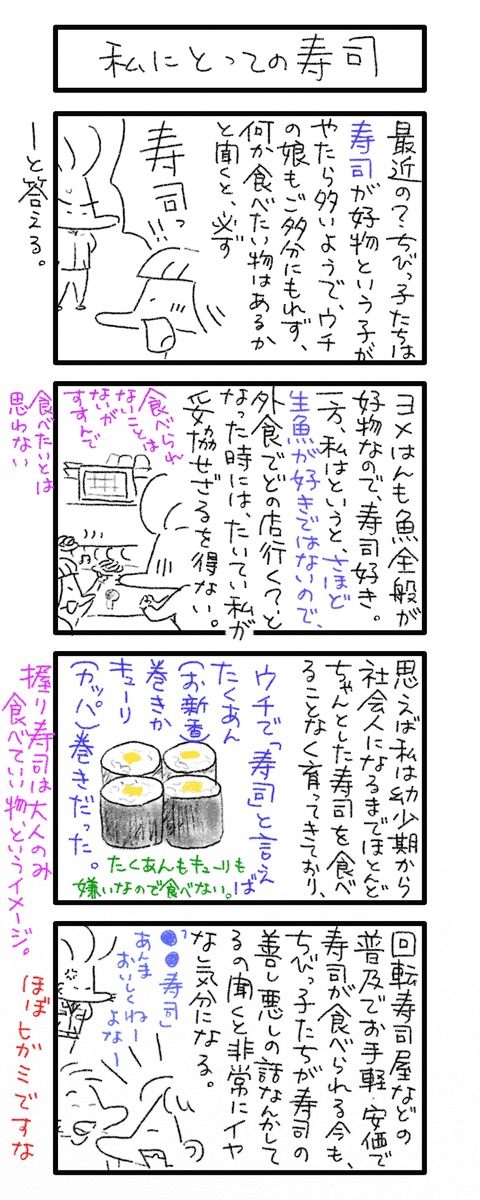 私にとっての寿司
最近の？ちびっ子たちは
寿司が好物という子が
やたら多いようで、ウチ
の娘もご多分にもれず、
何か食べたい物はあるか
と聞くと、必ず
寿司っ
!!
ーと答える。
ヨメはんも魚全般が
好物なので、寿司好き。
一方、私はというと、さほど
生魚が好きではないので、
外食でどの店行く？と
なった時には、たいてい私が
妥協せざるを得ない。
食べられ
ないことは
ないが
すすんで
食べたいとは
思わない
思えば私は幼少期から
社会人になるまでほとんど
ちゃんとした寿司を食べ
ることなく育ってきており、
ウチで「寿司」と言えば
たくあん
(お新香)
巻きか
キューリ
(カッパ)巻きだった。
たくあんもキューリも
嫌いなので食べない。
握り寿司は大人のみ
食べていい物、というイメージ。
回転寿司屋などの
普及でお手軽・安価で
寿司が食べられる今も、
ちびっ子たちが寿司の
善し悪しの話なんかして
るの聞くと非常にイヤ
な気分になる。
「●●寿司」
あんま
おいしくねー
よなー
ほぼヒガミですな